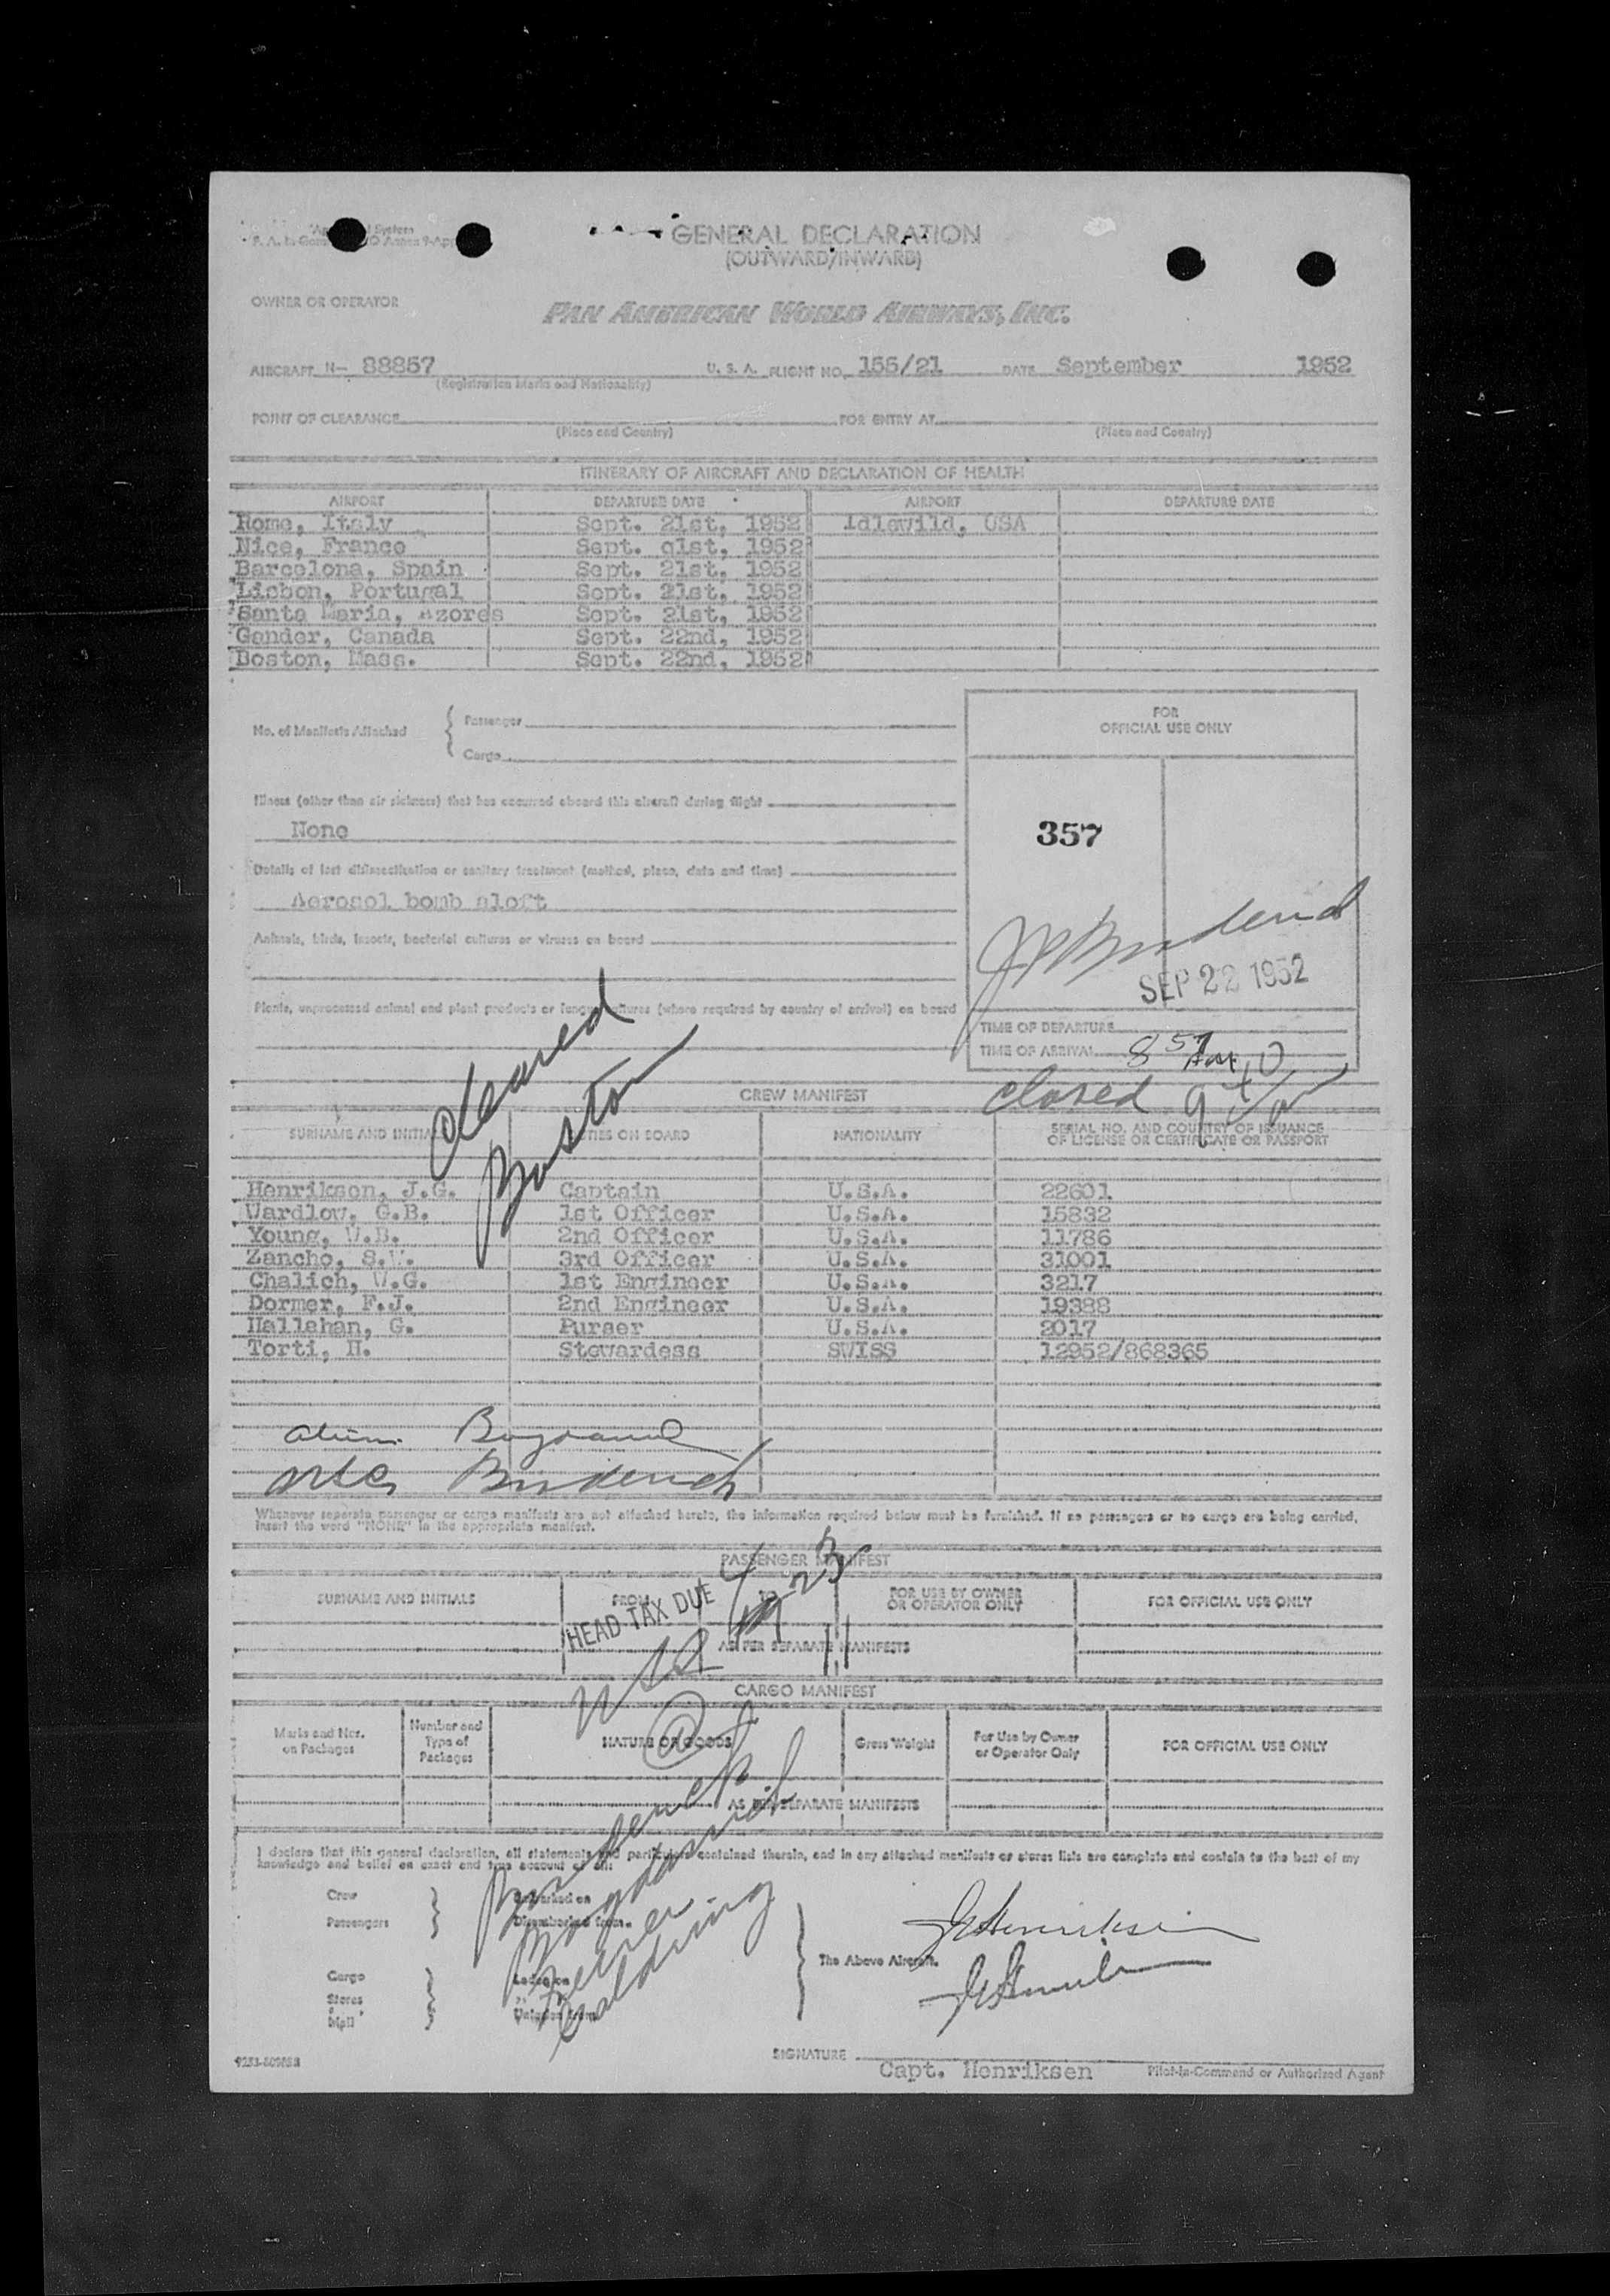 GENERAL DECLARATION
(OUTWARD/INWARD)
OWNER OR OPERATOR PAN AMERICAN WORLD AIRWAYS, INC.
AIRCRAFT N- 88857 U. S. A. FLIGHT NO. 155/21 DATE September 1952
(Registration Marks and Nationality)
POINT OF CLEARANCE FOR ENTRY AT
(Place and Country) (Place and Country)
ITINERARY OF AIRCRAFT AND DECLARATION OF HEALTH
AIRPORT DEPARTURE DATE AIRPORT DEPARTURE DATE
Rome, Italy Sept. 21st, 1952 Idlewild, USA
Nice, France Sept. q1st, 1952
Barcelona, Spain Sept. 21st, 1952
Lisbon, Portugal Sept. 21st, 1952
Santa Maria, Azores Sept. 21st, 1952
Gander, Canada Sept. 22nd, 1952
Boston, Mass. Sept. 22nd, 1952
No. of Manifests Attached { Passenger
Cargo
FOR
OFFICIAL USE ONLY
Illness (other than air sickness) that has occurred aboard this aircraft during flight
None
357
Details of last disinsectization or sanitary treatment (method, place, date and time)
Aerosol bomb aloft
Animals, birds, insects, bacterial cultures or viruses on board
SEP 22 1952
Plants, unprocessed animal and plant products or fungus cultures (where required by country of arrival) on board
TIME OF DEPARTURE
TIME OF ARRIVAL 8 57 AM
Cleared
Boston
closed 9 40 AM
CREW MANIFEST
SURNAME AND INITIALS DUTIES ON BOARD NATIONALITY SERIAL NO. AND COUNTRY OF ISSUANCE
OF LICENSE OR CERTIFICATE OR PASSPORT
Henriksen, J.G. Captain U.S.A. 22601
Wardlow, G.B. 1st Officer U.S.A. 15832
Young, W.B. 2nd Officer U.S.A. 11786
Zancho, S.W. 3rd Officer U.S.A. 31001
Chalich, W.G. 1st Engineer U.S.A. 3217
Dormer, F.J. 2nd Engineer U.S.A. 19388
Hallehan, G. Purser U.S.A. 2017
Torti, H. Stewardess SWISS 12952/868365
Whenever separate passenger or cargo manifests are not attached hereto, the information required below must be furnished. If no passengers or no cargo are being carried,
insert the word "NONE" in the appropriate manifest.
PASSENGER MANIFEST
SURNAME AND INITIALS FROM TO FOR USE BY OWNER
OR OPERATOR ONLY FOR OFFICIAL USE ONLY
HEAD TAX DUE
AS PER SEPARATE MANIFESTS
CARGO MANIFEST
Marks and Nos.
on Packages Number and
Type of
Packages NATURE OF GOODS Gross Weight For Use by Owner
or Operator Only FOR OFFICIAL USE ONLY
AS PER SEPARATE MANIFESTS
I declare that this general declaration, all statements and particulars contained therein, and in any attached manifests or stores lists are complete and contain to the best of my
knowledge and belief an exact and true account of all:
Crew Embarked on
Passengers Disembarked from
The Above Aircraft.
Cargo Laden on
Stores
Mail Unladen from
Goldring
SIGNATURE
Capt. Henriksen Pilot-in-Command or Authorized Agent